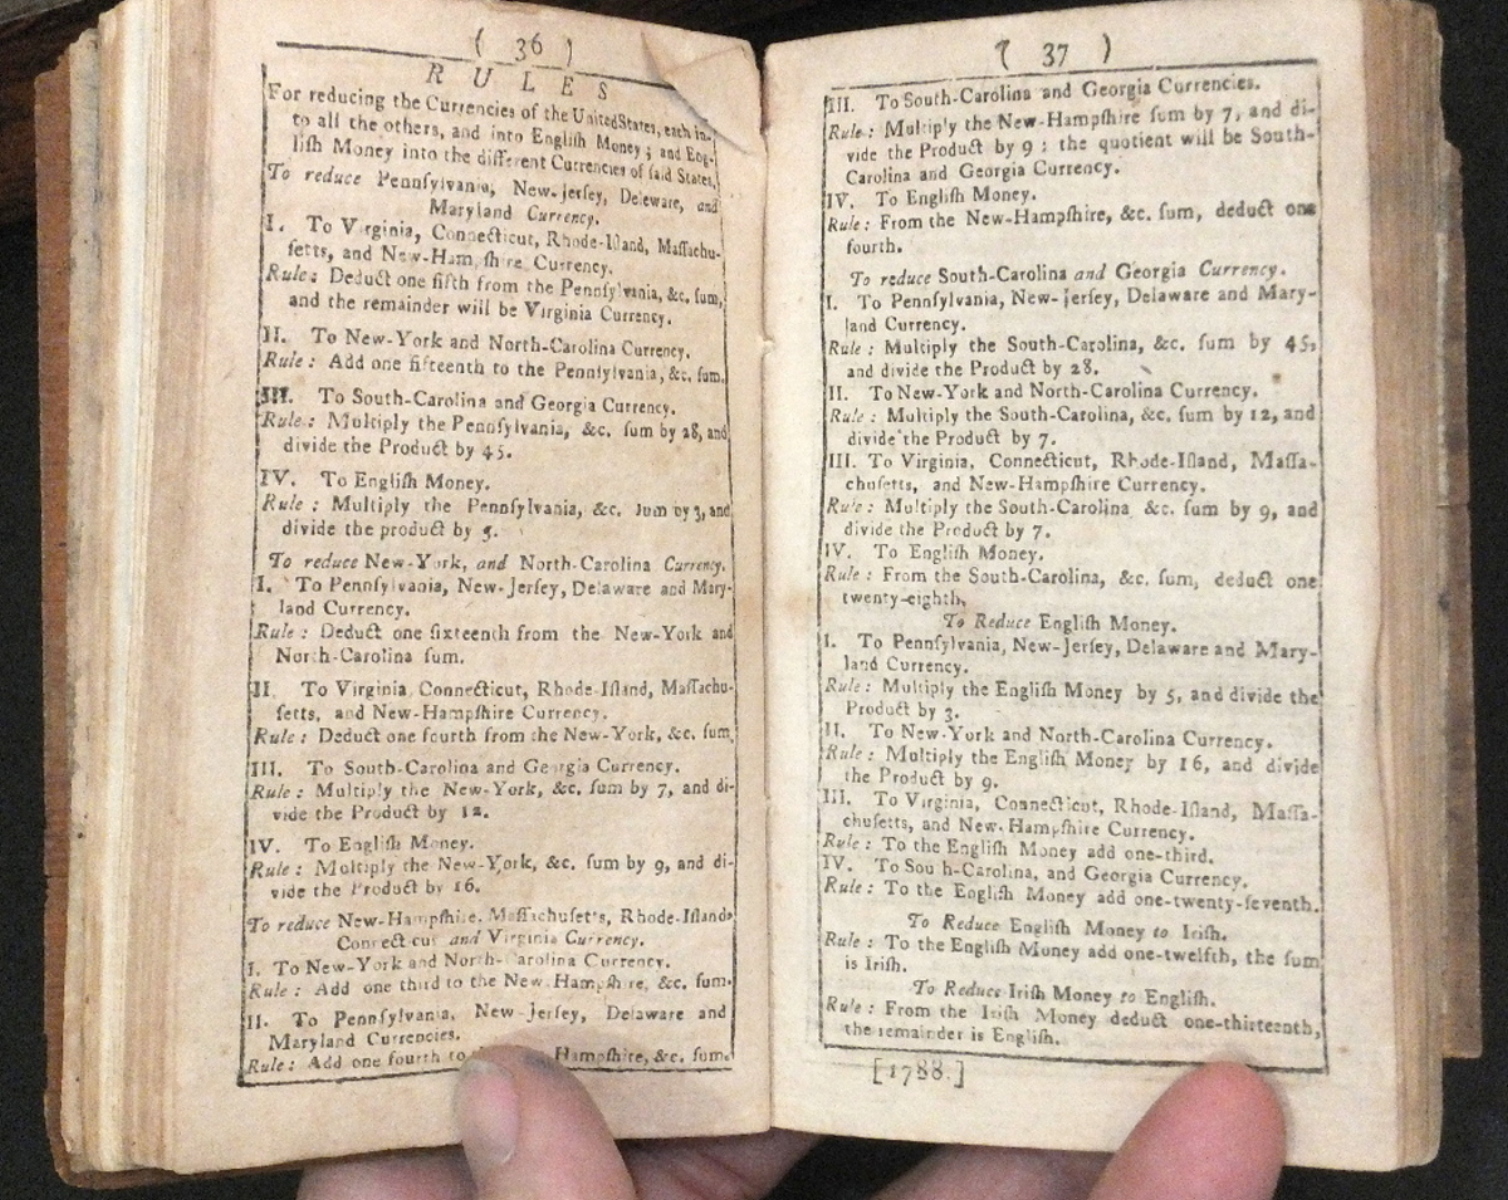 ( 36 )
RULES
For reducing the Currencies of the United States, each in-
to all the others, and into Engliſh Money; and Eng-
liſh Money into the different Currencies of ſaid States.
To reduce Pennſylvania, New-Jerſey, Deleware, and
Maryland Currency.
I. To Virginia, Connecticut, Rhode-Iſland, Maſſachu-
ſetts, and New-Hampſhire Currency.
Rule: Deduct one fifth from the Pennſylvania, &c. ſum,
and the remainder will be Virginia Currency.
II. To New-York and North-Carolina Currency.
Rule: Add one fifteenth to the Pennſylvania, &c. ſum.
III. To South-Carolina and Georgia Currency.
Rule: Multiply the Pennſylvania, &c. ſum by 28, and
divide the Product by 45.
IV. To Engliſh Money.
Rule: Multiply the Pennſylvania, &c. ſum by 3, and
divide the product by 5.
To reduce New-York, and North-Carolina Currency.
I. To Pennſylvania, New-Jerſey, Delaware and Mary-
land Currency.
Rule: Deduct one ſixteenth from the New-York and
North-Carolina ſum.
II. To Virginia, Connecticut, Rhode-Iſland, Maſſachu-
ſetts, and New-Hampſhire Currency.
Rule: Deduct one fourth from the New-York, &c. ſum.
III. To South-Carolina and Georgia Currency.
Rule: Multiply the New-York, &c. ſum by 7, and di-
vide the Product by 12.
IV. To Engliſh Money.
Rule: Multiply the New-York, &c. ſum by 9, and di-
vide the Product by 16.
To reduce New-Hampſhire, Maſſachuſetts, Rhode-Iſland,
Connecticut and Virginia Currency.
I. To New-York and North-Carolina Currency.
Rule: Add one third to the New-Hampſhire, &c. ſum.
II. To Pennſylvania, New-Jerſey, Delaware and
Maryland Currencies.
Rule: Add one fourth to Hampſhire, &c. ſum.
( 37 )
III. To South-Carolina and Georgia Currencies.
Rule: Multiply the New-Hampſhire ſum by 7, and di-
vide the Product by 9: the quotient will be South-
Carolina and Georgia Currency.
IV. To Engliſh Money.
Rule: From the New-Hampſhire, &c. ſum, deduct one
fourth.
To reduce South-Carolina and Georgia Currency.
I. To Pennſylvania, New-Jerſey, Delaware and Mary-
land Currency.
Rule: Multiply the South-Carolina, &c. ſum by 45,
and divide the Product by 28.
II. To New-York and North-Carolina Currency.
Rule: Multiply the South-Carolina, &c. ſum by 12, and
divide the Product by 7.
III. To Virginia, Connecticut, Rhode-Iſland, Maſſa-
chuſetts, and New-Hampſhire Currency.
Rule: Multiply the South-Carolina &c. ſum by 9, and
divide the Product by 7.
IV. To Engliſh Money.
Rule: From the South-Carolina, &c. ſum, deduct one
twenty-eighth.
To Reduce Engliſh Money.
I. To Pennſylvania, New-Jerſey, Delaware and Mary-
land Currency.
Rule: Multiply the Engliſh Money by 5, and divide the
Product by 3.
II. To New-York and North-Carolina Currency.
Rule: Multiply the Engliſh Money by 16, and divide
the Product by 9.
III. To Virginia, Connecticut, Rhode-Iſland, Maſſa-
chuſetts, and New-Hampſhire Currency.
Rule: To the Engliſh Money add one-third.
IV. To South-Carolina, and Georgia Currency.
Rule: To the Engliſh Money add one-twenty-ſeventh.
To Reduce Engliſh Money to Iriſh.
Rule: To the Engliſh Money add one-twelfth, the ſum
is Iriſh.
To Reduce Iriſh Money to Engliſh.
Rule: From the Iriſh Money deduct one-thirteenth,
the remainder is Engliſh.
[1788.]